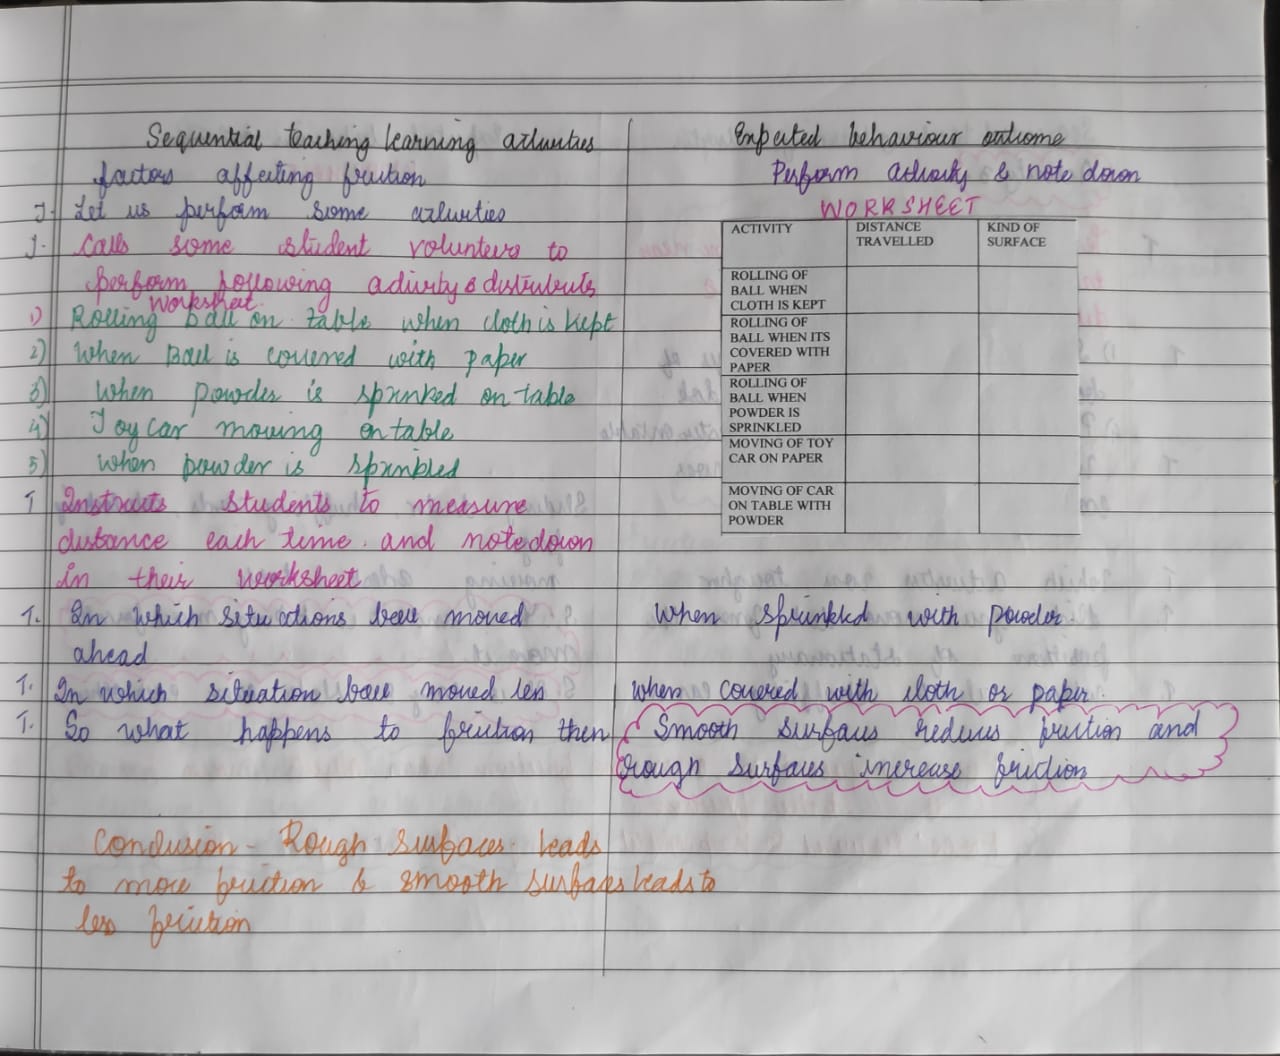 Sequential teaching learning activities
factors affecting friction
T- Let us perform some activities
T- Calls some student volunteers to
perform following activity & distributes
worksheet.
1) Rolling ball on table when cloth is kept
2) When Ball is covered with paper
3) when powder is sprinked on table
4) Toy car moving on table
5) when powder is sprinkled
T Instructs students to measure
distance each time. and note down
in their worksheet
T. In which situations ball moved
ahead
T. In which situation ball moved less
T. So what happens to friction then
Conclusion - Rough surfaces leads
to more friction & smooth surfaces leads to
less friction
Expected behaviour outcome
Perform activity & note down
WORKSHEET
ACTIVITY DISTANCE TRAVELLED KIND OF SURFACE
ROLLING OF
BALL WHEN
CLOTH IS KEPT
ROLLING OF
BALL WHEN ITS
COVERED WITH
PAPER
ROLLING OF
BALL WHEN
POWDER IS
SPRINKLED
MOVING OF TOY
CAR ON PAPER
MOVING OF CAR
ON TABLE WITH
POWDER
When sprinkled with powder.
when covered with cloth or paper.
Smooth surfaces reduces friction and
rough surfaces increase friction